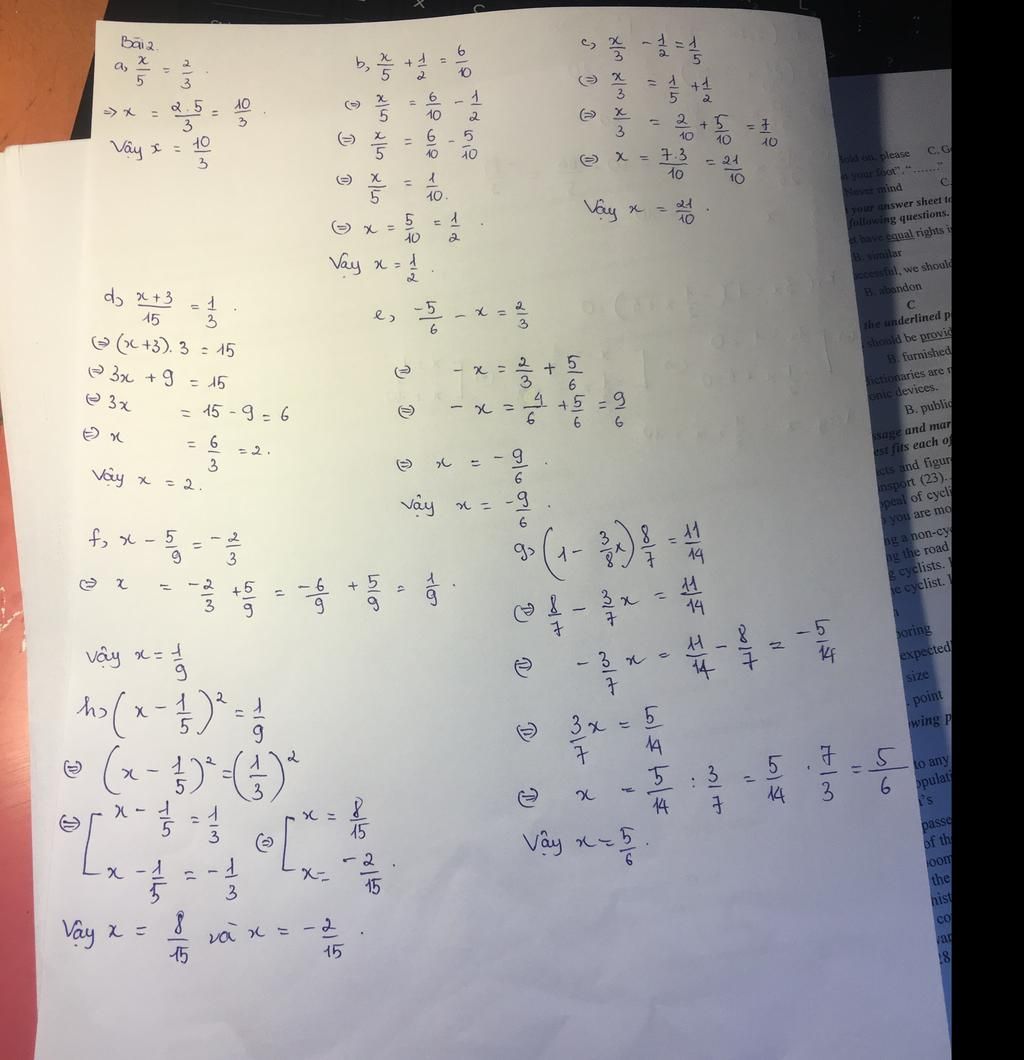 Bài 2.
a, x/5 = 2/3.
=> x = 2.5/3 = 10/3.
Vậy x = 10/3
b, x/5 + 1/2 = 6/10
(=) x/5 = 6/10 - 1/2
(=) x/5 = 6/10 - 5/10
(=) x/5 = 1/10.
(=) x = 5/10 = 1/2.
Vậy x = 1/2.
c, x/3 - 1/2 = 1/5
(=) x/3 = 1/5 + 1/2
(=) x/3 = 2/10 + 5/10 = 7/10
(=) x = 7.3/10 = 21/10
Vậy x = 21/10.
d, x+3/15 = 1/3.
(=) (x+3).3 = 15
(=) 3x + 9 = 15
(=) 3x = 15 - 9 = 6
(=) x = 6/3 = 2.
Vậy x = 2.
e, -5/6 - x = 2/3
(=) - x = 2/3 + 5/6
(=) - x = 4/6 + 5/6 = 9/6
(=) x = -9/6.
Vậy x = -9/6.
f, x - 5/9 = -2/3
(=) x = -2/3 + 5/9 = -6/9 + 5/9 = 1/9.
Vậy x = 1/9
g, (1 - 3/8 x) 8/7 = 11/14
(=) 8/7 - 3/7 x = 11/14
(=) -3/7 x = 11/14 - 8/7 = -5/14
(=) 3/7 x = 5/14
(=) x = 5/14 : 3/7 = 5/14 . 7/3 = 5/6
Vậy x = 5/6.
h, (x - 1/5)² = 1/9
(=) (x - 1/5)² = (1/3)²
(=) [ x - 1/5 = 1/3 (=) [ x = 8/15
x - 1/5 = -1/3 x = -2/15.
Vậy x = 8/15 và x = -2/15.
old on, please C.
your foot"."......."
Never mind C.
your answer sheet to
following questions.
have equal rights
B. similar
ccessful, we should
B. abandon
C
the underlined
should be
B. furnished
ictionaries are
onic devices.
B. public
ssage and mar
est fits each of
cts and figur
nsport (23).
peal of cycl
you are mo
ng a non-cy
ng the road
cyclists.
e cyclist.
oring
expected
size
point
owing
to any
opulati
's
passe
of th
oom
the
hist
co
war
28